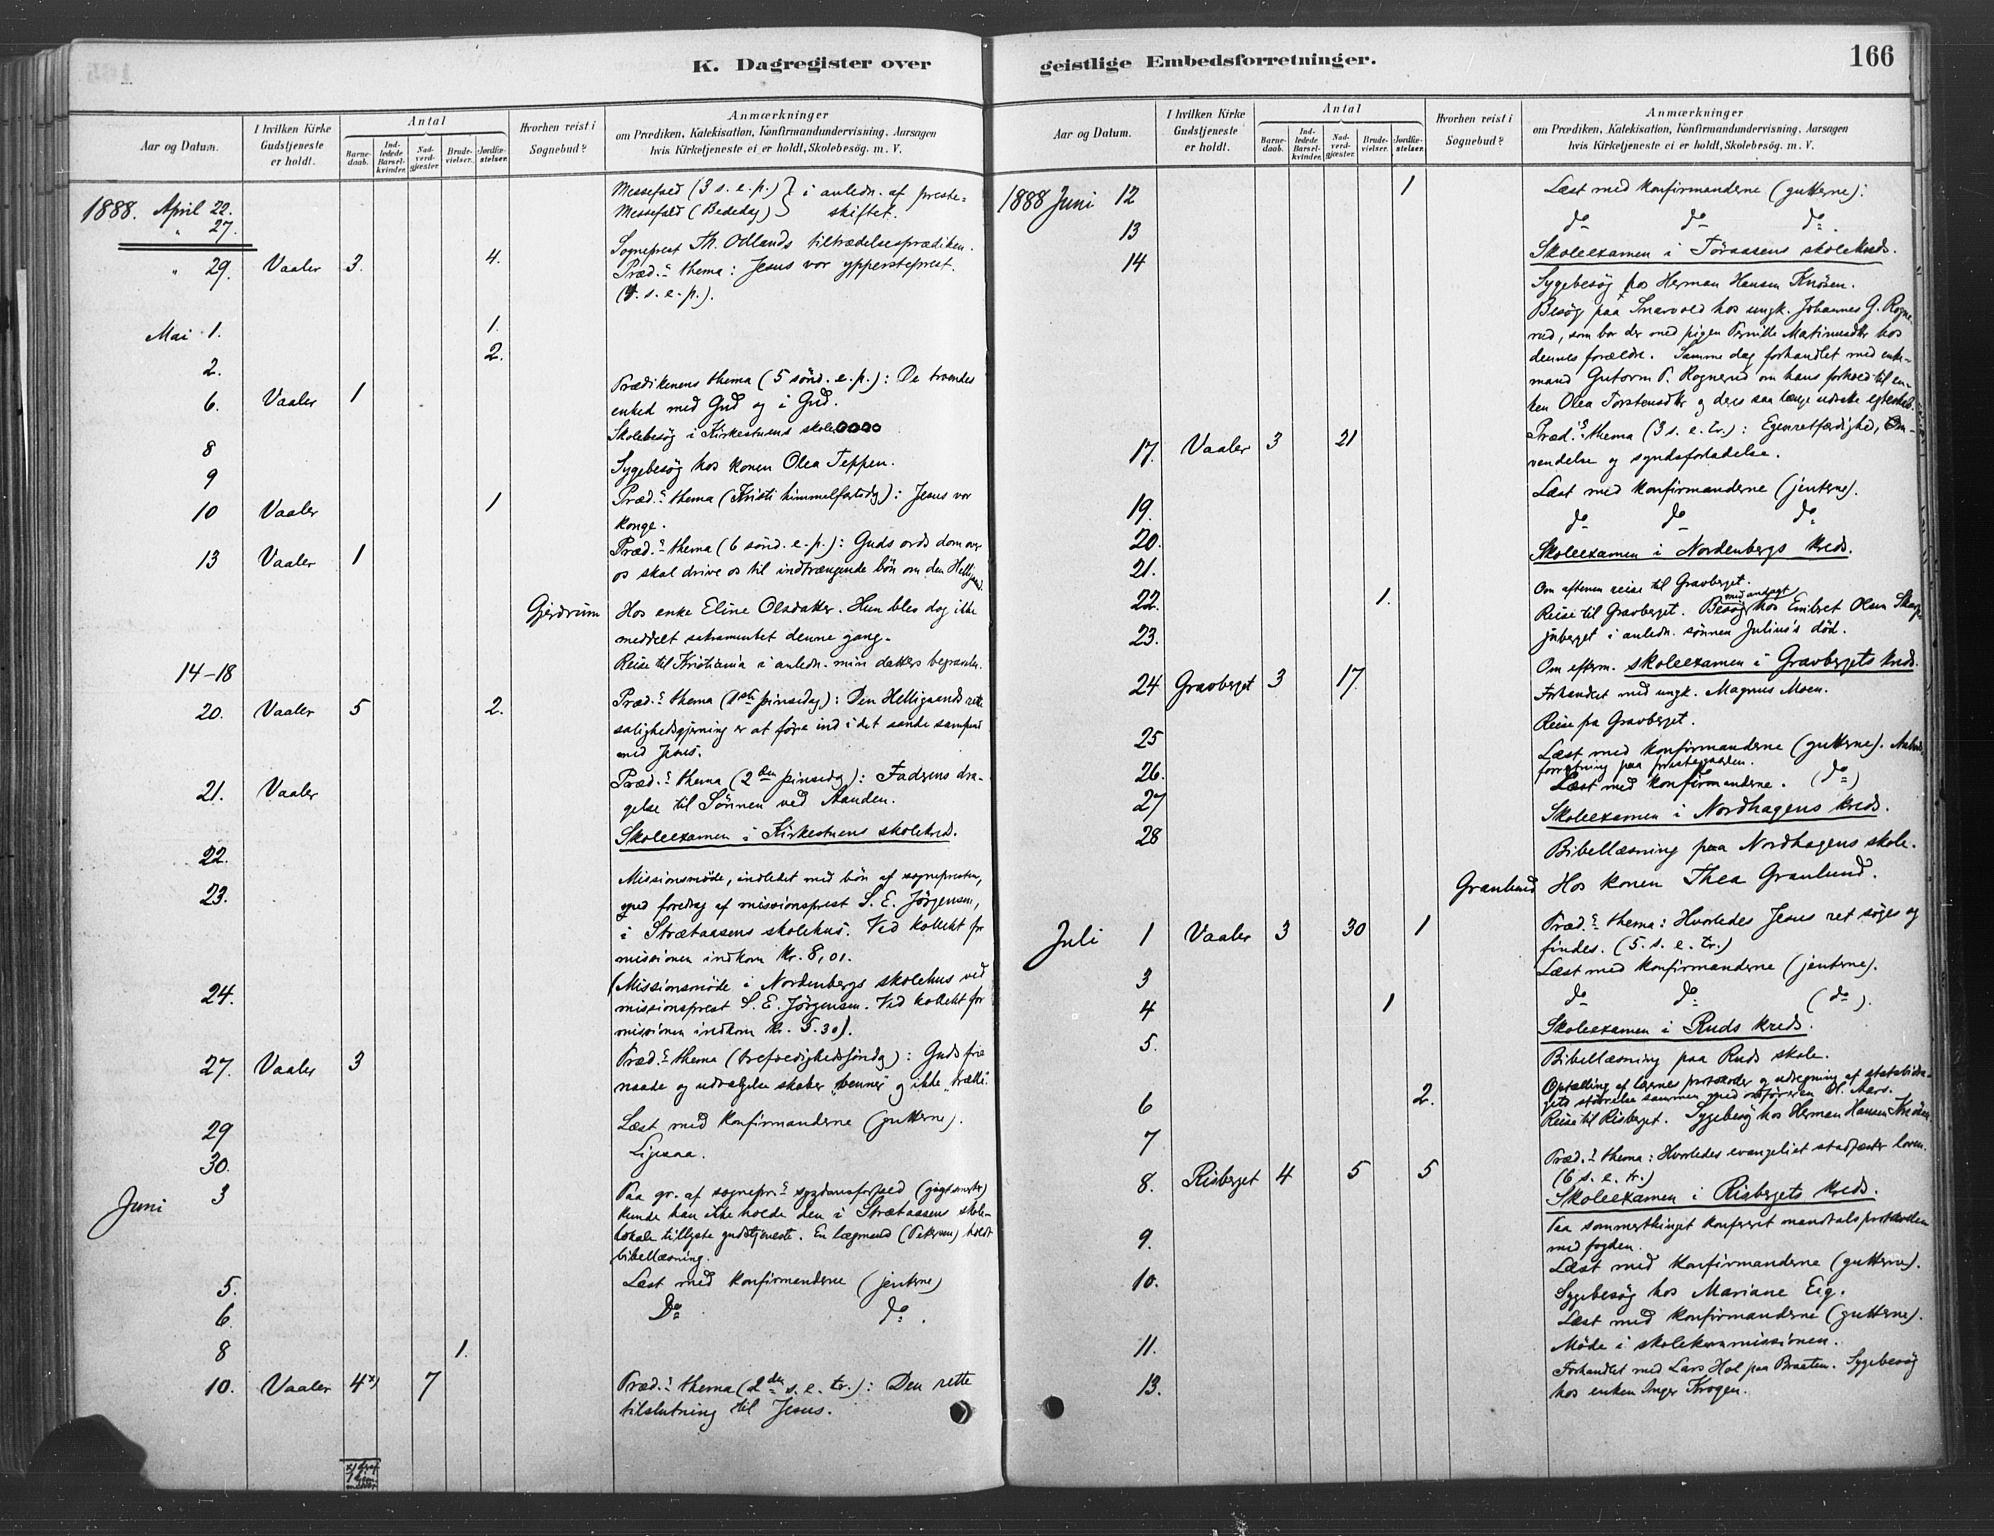 K. Dagregister over
Aar og Datum.
I hvilken Kirke Gudstjeneste er holdt.
Antal
Barnedaab.
Indledede Barselkvinder.
Nadverdgjæster.
Brudevielser.
Jordfæstelser.
Hvorhen reist i Sognebud?
Anmærkninger
om Prædiken, Katekisation, Konfirmandundervisning, Aarsagen
hvis Kirketjeneste ei er holdt, Skolebesøg. m. V.
1888. April 22. Messefald (3 s. e. p.) } i anledn. af preste-
" 27. Messefald (Bededag) } skiftet.
Sogneprest Th. Odlands tiltrædelsesprædiken.
" 29. Vaaler 3. 4. Præd.s thema: Jesus vor ypperstepræst.
(4. s. e. p.).
Mai 1. 1.
2. 2.
6. Vaaler 1 Prædikenens thema (5 sønd. e. p.): De troendes
enhed med Gud og i Gud.
8 Skolebesøg i Kirkestuens skole
9 Sygebesøg hos konen Olea Teppen.
10 Vaaler 1 Præd.s thema (Kristi himmelfartsdg): Jesus vor
konge.
13 Vaaler 1 Præd.s thema (6 sønd. e. p.): Guds ords dom over
os skal drive os til indtrængende bøn om den Helligaand.
Gjerdrum Hos enke Eline Olsdatter. Hun blev dog ikke
meddelt sakramentet denne gang.
14-18 Reise til Kristiania i anledn. min datters begravelse.
20. Vaaler 5 2. Præd.s thema (1ste pinsedag): Den Helligaands rette
salighedsgjerning er at føre ind i det sande samfund
med Jesus.
21. Vaaler Præd.s thema (2den pinsedg): Faderens dra-
gelse til Sønnen ved Aanden.
22. Skoleexamen i Kirkestuens skolekreds.
23. Missionsmøde, indledet med bøn af sognepresten,
med foredrag af missionsprest S. E. Jörgensen,
i Strætaasens skolehus. Ved kollekt for
missionen indkom kr. 8,01.
24. (Missionsmøde i Nordenbergs skolehus ved
missionsprest S. E. Jörgensen. Ved kollekt for
missionen indkom kr. 5.30).
27. Vaaler 3 Præd.s thema (trefoldighedssøndg): Guds frie
naade og udvælgelse skaber "venner" og ikke "trælle".
29 Læst med konfirmanderne (gutterne).
30. Ligesaa.
Juni 3 Paa gr. af sognepr.s sygdomsforfald (gigtsmerter)
kunde han ikke holde den i Strætaasens skole-
lokale tillyste gudstjeneste. En lægmand (Petersen) holdt
bibellæsning.
5. Læst med konfirmanderne (jenterne)
6. Do do.
8 1.
10. Vaaler 4x) 7 Præd.s thema (2den s. e. tr.): Den rette
tilslutning til Jesus.
geistlige Embedsforretninger.
166
Aar og Datum.
I hvilken Kirke Gudstjeneste er holdt.
Antal
Barnedaab.
Indledede Barselkvinder.
Nadverdgjæster.
Brudevielser.
Jordfæstelser.
Hvorhen reist i Sognebud?
Anmærkninger
om Prædiken, Katekisation, Konfirmandundervisning, Aarsagen
hvis Kirketjeneste ei er holdt, Skolebesøg. m. V.
1888 Juni 12 1 Læst med konfirmanderne (gutterne):
13 do do do.
14 Skoleexamen i Töraasens skolekreds.
Sygebesøg hos Herman Hansen Knösen.
Besøg paa Snarvold hos ungk. Johannes G. Rogne-
rud, som bor der med pigen Pernille Matinusdtr hos
dennes forældre. Samme dag forhandlet med enke-
mand Gutorm P. Rognerud om hans forhold til en-
ken Olea Torstensdtr og deres saa længe udsatte egteskab.
17. Vaaler 3 21 Præd.s thema (3 s. e. tr.): Egenretfærdighed, Om-
vendelse og syndsforladelse.
19. Læst med konfirmanderne (jenterne).
20. do do do
21. Skoleexamen i Nordenbergs kreds.
Om aftenen reise til Gravberget.
22. 1. Reise til Gravberget. Besøg med andagt hos Embret Olsen Skarp-
23. jnberget i anledn. sønnen Julius's död.
Om efterm. skoleexamen i Gravbergets kreds.
24 Gravberget 3 17. Forhandlet med ungk. Magnus Moen.
25 Reise fra Gravberget.
26. Læst med konfirmanderne (gutterne).
forretning paa prestegaarden.
27 Læst med konfirmanderne. (do)
28 Skoleexamen i Nordhagens kreds.
Bibellæsning paa Nordhagens skole.
Granlund Hos konen Thea Granlund.
Juli 1 Vaaler 3 30 1 Præd.s thema: Hvorledes Jesus ret søges og
findes. (5. s. e. tr.)
3 Læst med konfirmanderne (jenterne).
4 1 do do (do).
5. Skoleexamen i Ruds kreds.
Bibellæsning paa Ruds skole.
6 2. Optælling af lærernes protokoller og udregning af statsbidra-
gets størrelse sammen med ordföreren H. Aars.
7 Reise til Risberget. Sygebesøg hos Herman Hansen Knösen.
8. Risberget 4 5 5 Præd.s thema: Hvorledes evangeliet stadfæster loven.
(6 s. e. tr.)
Skoleexamen i Risbergets kreds.
9. Paa sommerthinget konfereret mandtalsprotokollen
med fogden.
10. Læst med konfirmanderne (gutterne).
Sygebesøg hos Mariane Eig.
11. Læst med konfirmanderne (gutterne).
Møde i skolekommissionen.
13. Forhandlet med Lars Hol paa Braaten. Sygebesøg
hos enken Inger Krogen.